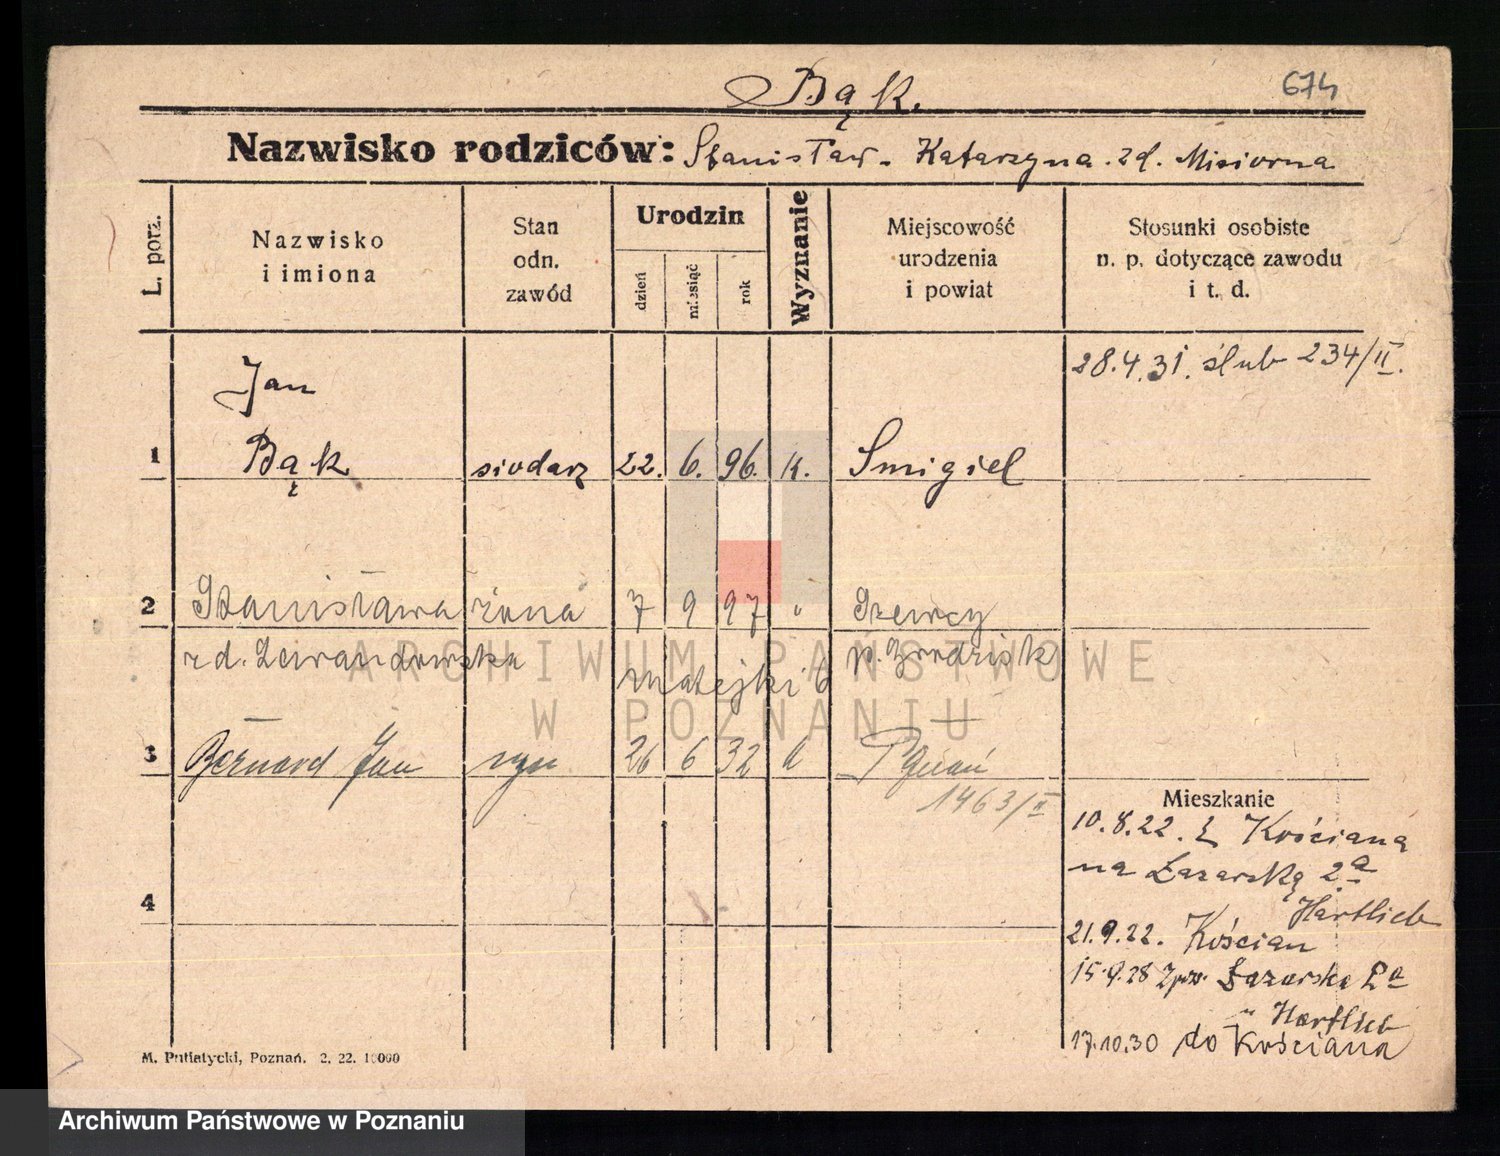 Bąk.
674
Nazwisko rodziców: Stanisław - Katarzyna. zd. Misiorna
L. porz.
Nazwisko i imiona
Stan odn. zawód
Urodzin
dzień
miesiąc
rok
Wyznanie
Miejscowość urodzenia i powiat
Stosunki osobiste n. p. dotyczące zawodu i t. d.
28.4.31. ślub 234/II.
Jan
1 Bąk siodarz 22. 6. 96. k. Smigiel
2 Stanisława żona 7 9 97 " Szewcy
zd. Lewandowska p. Grodzisk
Matejki 6
3 Bernard Jan syn 26 6 32 k Poznań
1463/II
Mieszkanie
10.8.22. z Kościana
na Łazarską 2a
Hartlieb
4
21.9.22. Kościan
15.9.28 Łazarska 2a
" Hartlieb
17.10.30 do Kościana
M. Putiatycki, Poznań. 2. 22. 10000
ARCHIWUM PAŃSTWOWE
W POZNANIU
Archiwum Państwowe w Poznaniu